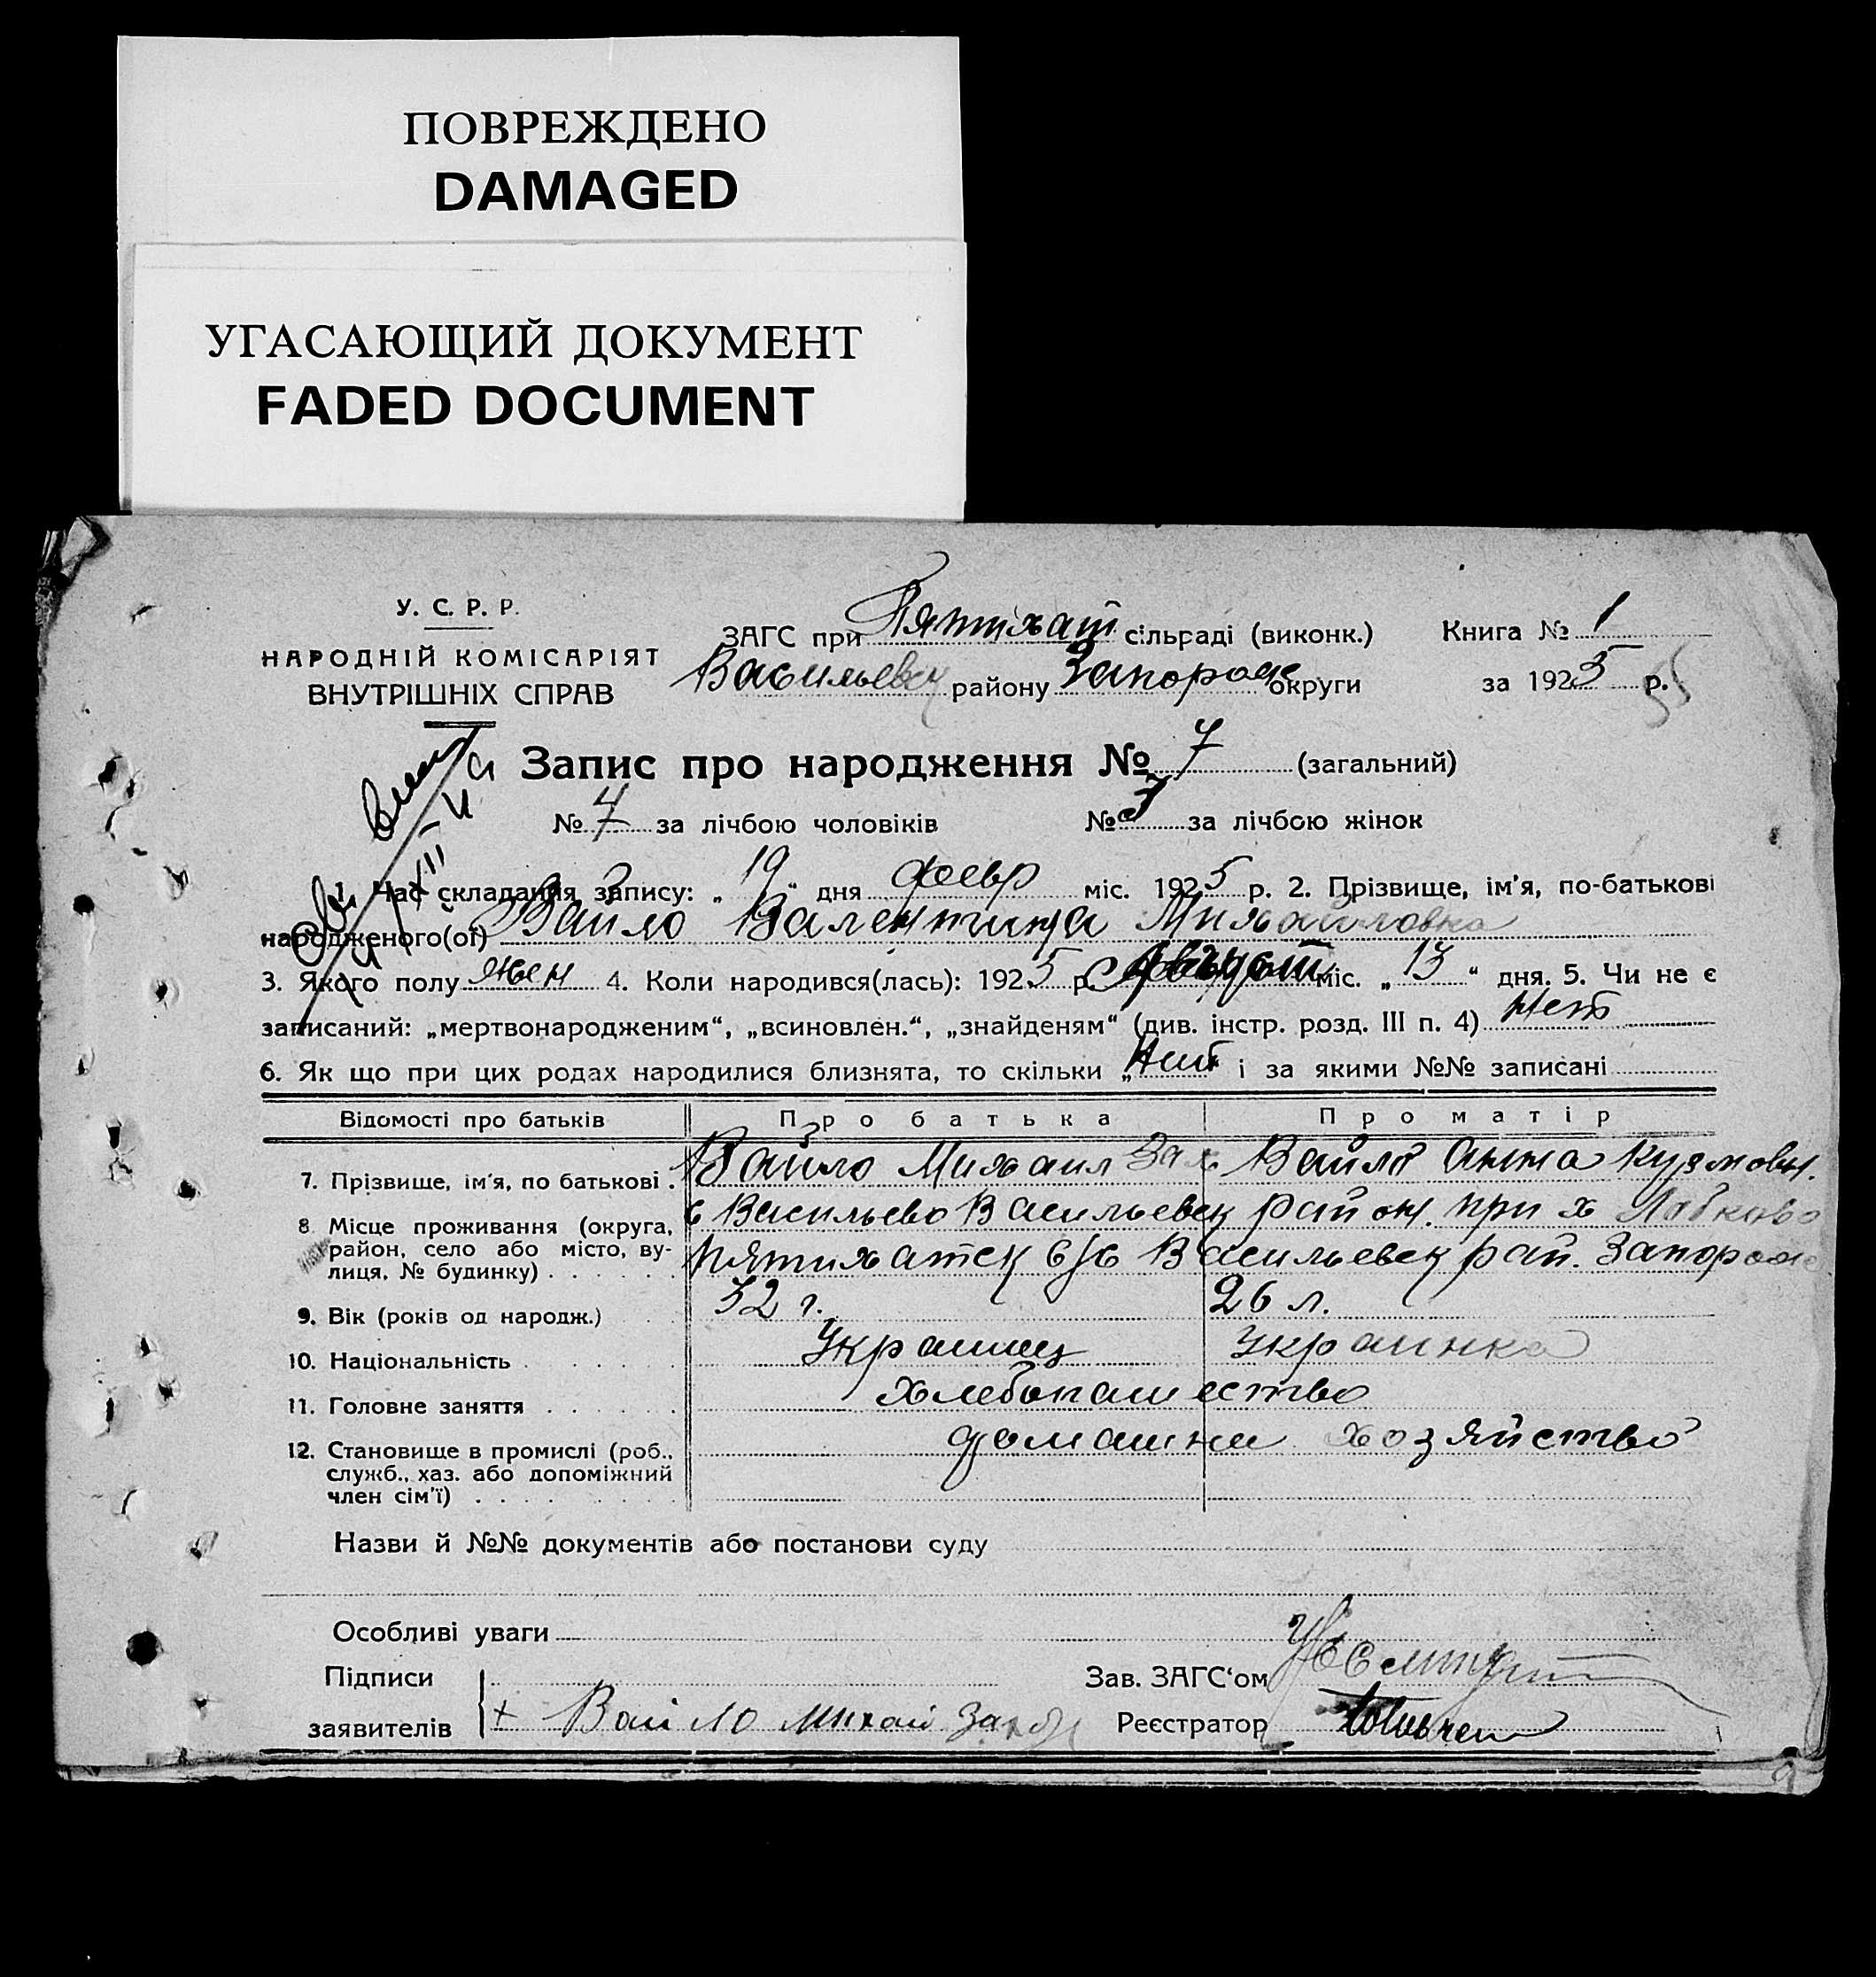 ПОВРЕЖДЕНО
DAMAGED
УГАСАЮЩИЙ ДОКУМЕНТ
FADED DOCUMENT
У. С. Р. Р.
НАРОДНІЙ КОМІСАРІЯТ
ВНУТРІШНІХ СПРАВ
ЗАГС при Пятихат сільраді (виконк.) Книга № 1
Васильевск району Запорож округи за 1925 р.
Запис про народження № 7 (загальний)
№ 4 за лічбою чоловіків № 3 за лічбою жінок
1. Час складання запису: „ 19 “ дня февр міс. 1925 р. 2. Прізвище, ім'я, по-батькові
народженого(ої) Вайло Валентина Михайловна
3. Якого полу жен 4. Коли народився(лась): 1925 р. міс. „ 13 “ дня. 5. Чи не є
записаний: „мертвонародженим“, „всиновлен.“, „знайденям“ (див. інстр. розд. III п. 4) Нет
6. Як що при цих родах народилися близнята, то скільки „ Нит і за якими №№ записані
Відомості про батьків Про батька Про матір
7. Прізвище, ім'я, по батькові . Вайло Михаил Зах Вайло Анна Кузмовн.
8 Місце проживання (округа, с Васильево Васильевск район. при х
район, село або місто, ву-
лиця, № будинку) . . . . . . Пятихатск с/с Васильевск рай. Запорож
9. Вік (років од народж.) 32 г. 26 л.
10. Національність . . . . . . . Украинец Украинка
11. Головне заняття . . . . . . Хлебопашество
12. Становище в промислі (роб., домашни хозяйство
служб., хаз. або допоміжний
член сім'ї) . . . . . . . . .
Назви й №№ документів або постанови суду
Особливі уваги
Підписи Зав. ЗАГС‘ом
заявителів + Вайло Михаи Захар Реєстратор